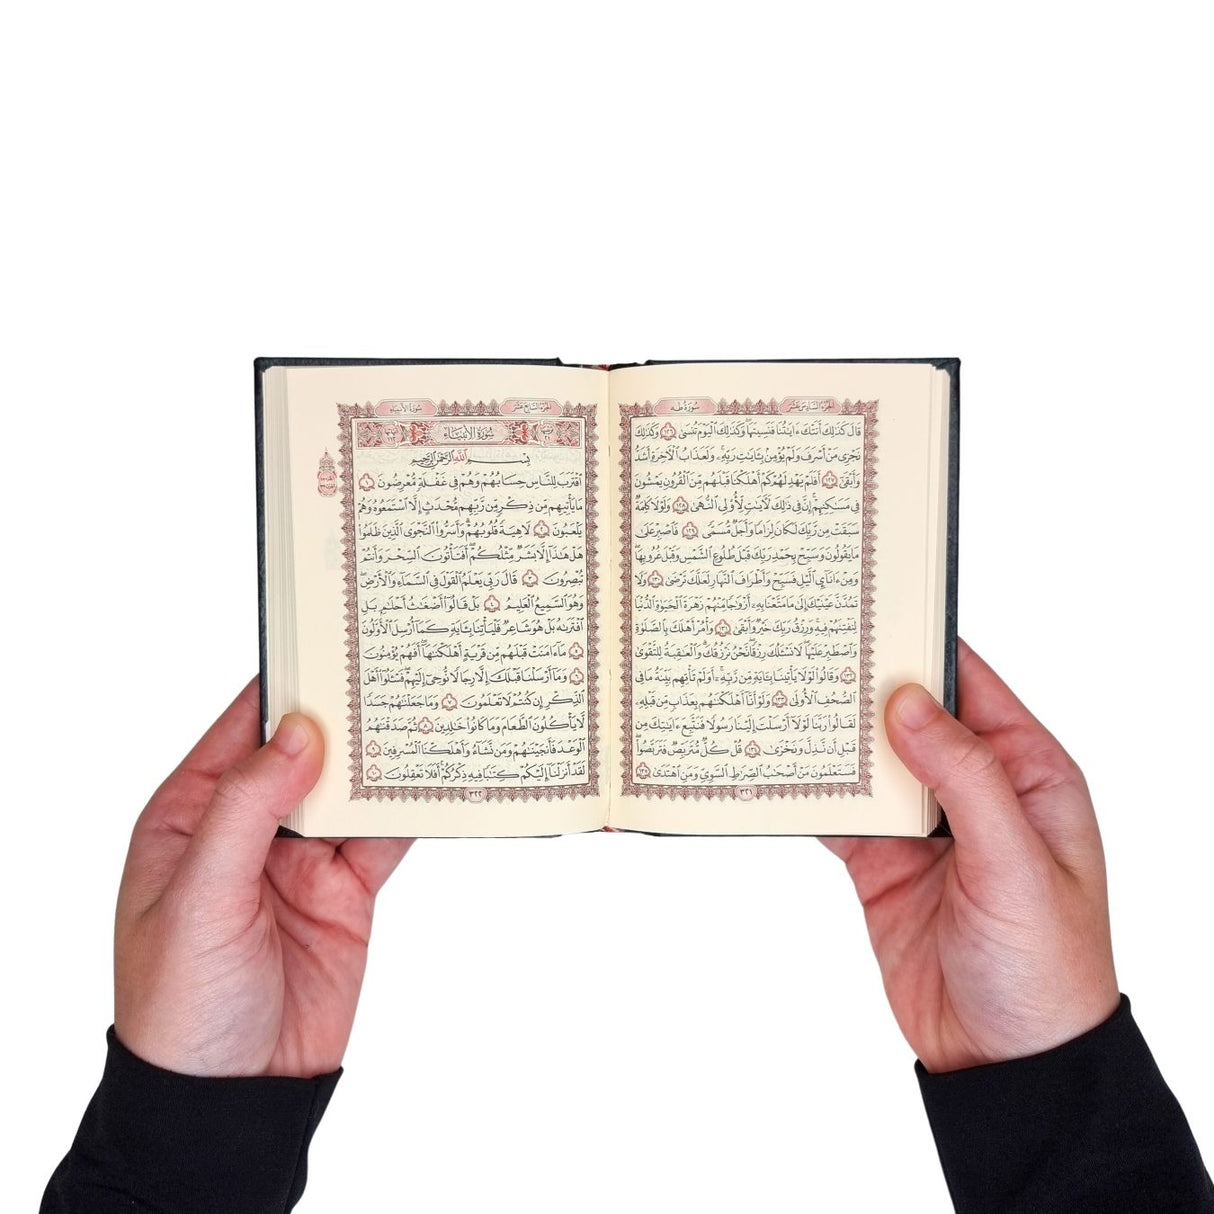 الجزء السادس عشر
سورة طه
قَالَ كَذَٰلِكَ أَتَتْكَ ءَايَٰتُنَا فَنَسِيتَهَا وَكَذَٰلِكَ ٱلْيَوْمَ تُنسَىٰ ١٢٦ وَكَذَٰلِكَ
نَجْزِى مَنْ أَسْرَفَ وَلَمْ يُؤْمِنۢ بِـَٔايَٰتِ رَبِّهِۦ وَلَعَذَابُ ٱلْءَاخِرَةِ أَشَدُّ
وَأَبْقَىٰٓ ١٢٧ أَفَلَمْ يَهْدِ لَهُمْ كَمْ أَهْلَكْنَا قَبْلَهُم مِّنَ ٱلْقُرُونِ يَمْشُونَ
فِى مَسَٰكِنِهِمْ إِنَّ فِى ذَٰلِكَ لَءَايَٰتٍ لِّأُو۟لِى ٱلنُّهَىٰ ١٢٨ وَلَوْلَا كَلِمَةٌ
سَبَقَتْ مِن رَّبِّكَ لَكَانَ لِزَامًا وَأَجَلٌ مُّسَمًّى ١٢٩ فَٱصْبِرْ عَلَىٰ
مَا يَقُولُونَ وَسَبِّحْ بِحَمْدِ رَبِّكَ قَبْلَ طُلُوعِ ٱلشَّمْسِ وَقَبْلَ غُرُوبِهَا
وَمِنْ ءَانَآئِ ٱلَّيْلِ فَسَبِّحْ وَأَطْرَافَ ٱلنَّهَارِ لَعَلَّكَ تَرْضَىٰ ١٣٠ وَلَا
تَمُدَّنَّ عَيْنَيْكَ إِلَىٰ مَا مَتَّعْنَا بِهِۦٓ أَزْوَٰجًا مِّنْهُمْ زَهْرَةَ ٱلْحَيَوٰةِ ٱلدُّنْيَا
لِنَفْتِنَهُمْ فِيهِ وَرِزْقُ رَبِّكَ خَيْرٌ وَأَبْقَىٰ ١٣١ وَأْمُرْ أَهْلَكَ بِٱلصَّلَوٰةِ
وَٱصْطَبِرْ عَلَيْهَا لَا نَسْـَٔلُكَ رِزْقًا نَّحْنُ نَرْزُقُكَ وَٱلْعَٰقِبَةُ لِلتَّقْوَىٰ
١٣٢ وَقَالُوا۟ لَوْلَا يَأْتِينَا بِـَٔايَةٍ مِّن رَّبِّهِۦٓ أَوَلَمْ تَأْتِهِم بَيِّنَةُ مَا فِى
ٱلصُّحُفِ ٱلْأُولَىٰ ١٣٣ وَلَوْ أَنَّآ أَهْلَكْنَٰهُم بِعَذَابٍ مِّن قَبْلِهِۦ
لَقَالُوا۟ رَبَّنَا لَوْلَآ أَرْسَلْتَ إِلَيْنَا رَسُولًا فَنَتَّبِعَ ءَايَٰتِكَ مِن
قَبْلِ أَن نَّذِلَّ وَنَخْزَىٰ ١٣٤ قُلْ كُلٌّ مُّتَرَبِّصٌ فَتَرَبَّصُوا۟
فَسَتَعْلَمُونَ مَنْ أَصْحَٰبُ ٱلصِّرَٰطِ ٱلسَّوِىِّ وَمَنِ ٱهْتَدَىٰ ١٣٥
٣٢١
الجزء السابع عشر
سورة الأنبياء
سورة الأنبياء
بِسْمِ ٱللَّهِ ٱلرَّحْمَٰنِ ٱلرَّحِيمِ
ٱقْتَرَبَ لِلنَّاسِ حِسَابُهُمْ وَهُمْ فِى غَفْلَةٍ مُّعْرِضُونَ ١
مَا يَأْتِيهِم مِّن ذِكْرٍ مِّن رَّبِّهِم مُّحْدَثٍ إِلَّا ٱسْتَمَعُوهُ وَهُمْ
يَلْعَبُونَ ٢ لَاهِيَةً قُلُوبُهُمْ وَأَسَرُّوا۟ ٱلنَّجْوَى ٱلَّذِينَ ظَلَمُوا۟
هَلْ هَٰذَآ إِلَّا بَشَرٌ مِّثْلُكُمْ أَفَتَأْتُونَ ٱلسِّحْرَ وَأَنتُمْ
تُبْصِرُونَ ٣ قَالَ رَبِّى يَعْلَمُ ٱلْقَوْلَ فِى ٱلسَّمَآءِ وَٱلْأَرْضِ
وَهُوَ ٱلسَّمِيعُ ٱلْعَلِيمُ ٤ بَلْ قَالُوٓا۟ أَضْغَٰثُ أَحْلَٰمٍۭ بَلِ
ٱفْتَرَىٰهُ بَلْ هُوَ شَاعِرٌ فَلْيَأْتِنَا بِـَٔايَةٍ كَمَآ أُرْسِلَ ٱلْأَوَّلُونَ
٥ مَآ ءَامَنَتْ قَبْلَهُم مِّن قَرْيَةٍ أَهْلَكْنَٰهَآ أَفَهُمْ يُؤْمِنُونَ
٦ وَمَآ أَرْسَلْنَا قَبْلَكَ إِلَّا رِجَالًا نُّوحِىٓ إِلَيْهِمْ فَسْـَٔلُوٓا۟ أَهْلَ
ٱلذِّكْرِ إِن كُنتُمْ لَا تَعْلَمُونَ ٧ وَمَا جَعَلْنَٰهُمْ جَسَدًا
لَّا يَأْكُلُونَ ٱلطَّعَامَ وَمَا كَانُوا۟ خَٰلِدِينَ ٨ ثُمَّ صَدَقْنَٰهُمُ
ٱلْوَعْدَ فَأَنجَيْنَٰهُمْ وَمَن نَّشَآءُ وَأَهْلَكْنَا ٱلْمُسْرِفِينَ ٩
لَقَدْ أَنزَلْنَآ إِلَيْكُمْ كِتَٰبًا فِيهِ ذِكْرُكُمْ أَفَلَا تَعْقِلُونَ ١٠
٣٢٢